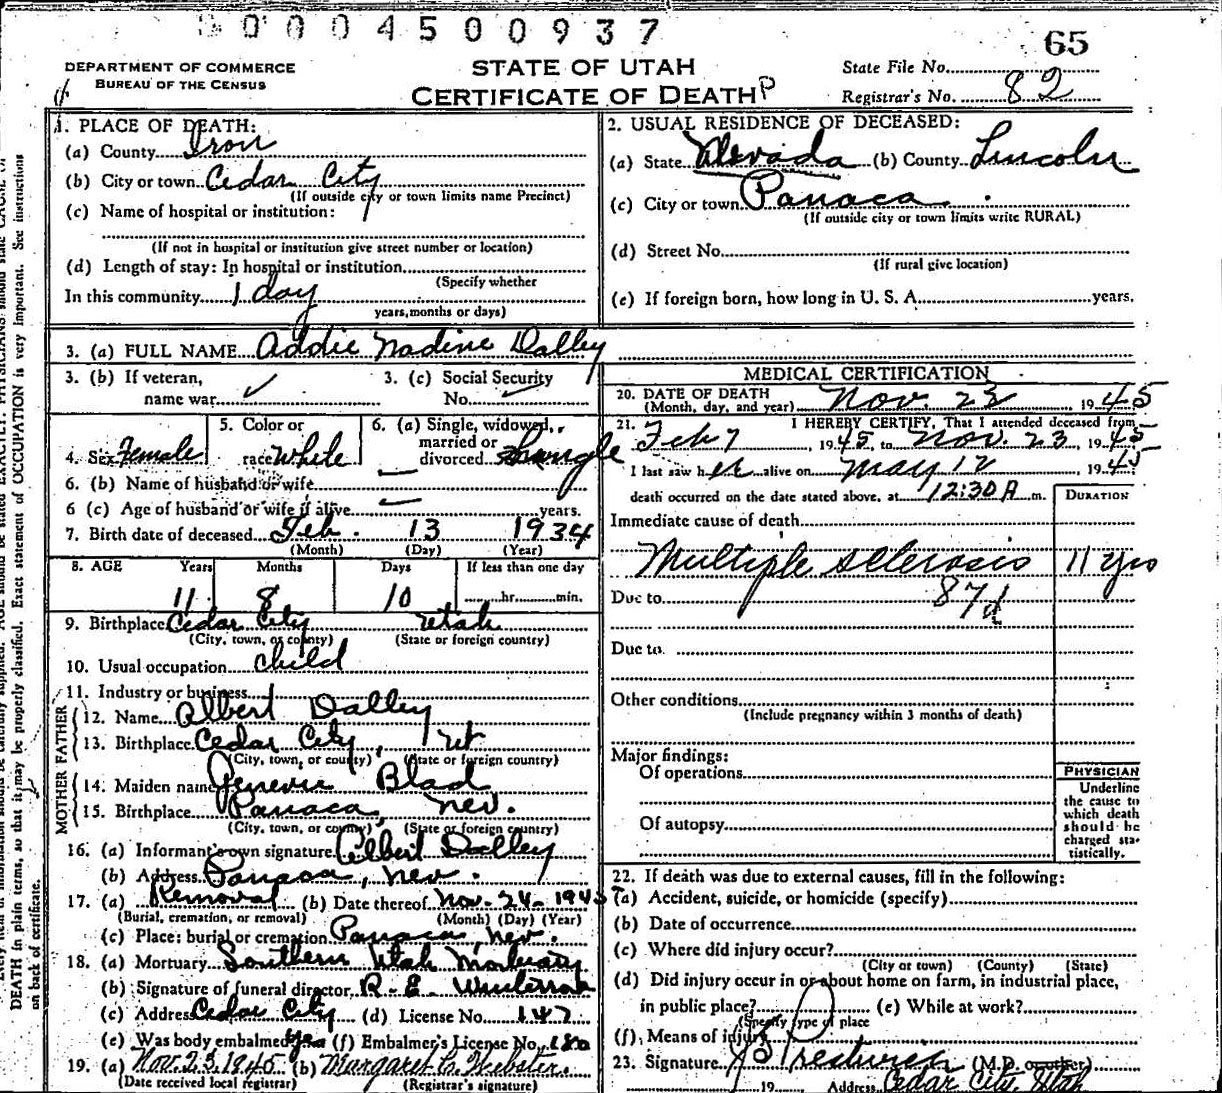 0004500937
65
DEPARTMENT OF COMMERCE
BUREAU OF THE CENSUS
STATE OF UTAH
CERTIFICATE OF DEATH P
State File No.
Registrar's No. 82
1. PLACE OF DEATH:
(a) County Iron
(b) City or town Cedar City
(If outside city or town limits name Precinct)
(c) Name of hospital or institution:
(If not in hospital or institution give street number or location)
(d) Length of stay: In hospital or institution
(Specify whether
In this community 1 day
years, months or days)
2. USUAL RESIDENCE OF DECEASED:
(a) State Nevada (b) County Lincoln
(c) City or town Panaca
(If outside city or town limits write RURAL)
(d) Street No.
(If rural give location)
(e) If foreign born, how long in U. S. A. years.
3. (a) FULL NAME Addie Nadine Dalley
3. (b) If veteran, name war
3. (c) Social Security No.
4. Sex Female
5. Color or race White
6. (a) Single, widowed, married or divorced Single
6. (b) Name of husband or wife
6 (c) Age of husband or wife if alive years.
7. Birth date of deceased Feb. 13 1934
(Month) (Day) (Year)
8. AGE Years Months Days If less than one day
11 8 10 hr. min.
9. Birthplace Cedar City Utah
(City, town, or county) (State or foreign country)
10. Usual occupation child
11. Industry or business
FATHER
12. Name Albert Dalley
13. Birthplace Cedar City, Ut
(City, town, or county) (State or foreign country)
MOTHER
14. Maiden name Blad
15. Birthplace Panaca, Nev.
(City, town, or county) (State or foreign country)
16. (a) Informant's own signature Albert Dalley
(b) Address Panaca, Nev.
17. (a) Removal (b) Date thereof Nov. 24 - 1945
(Burial, cremation, or removal) (Month) (Day) (Year)
(c) Place: burial or cremation Panaca, Nev.
18. (a) Mortuary Southern Utah Mortuary
(b) Signature of funeral director R. E.
(c) Address Cedar City (d) License No. 147
(e) Was body embalmed yes (f) Embalmer's License No.
19. (a) Nov. 23, 1945 (b) Margaret C. Webster.
(Date received local registrar) (Registrar's signature)
MEDICAL CERTIFICATION
20. DATE OF DEATH
(Month, day, and year) Nov. 23 1945
21. I HEREBY CERTIFY, That I attended deceased from
Feb 7 1945, to Nov. 23, 1945
I last saw her alive on May 12 1945
death occurred on the date stated above, at 12:30 A m.
DURATION
Immediate cause of death
Multiple sclerosis 11 yrs
Due to 87d
Due to
Other conditions
(Include pregnancy within 3 months of death)
Major findings:
Of operations
Of autopsy
PHYSICIAN
Underline
the cause to
which death
should be
charged sta-
tistically.
22. If death was due to external causes, fill in the following:
(a) Accident, suicide, or homicide (specify)
(b) Date of occurrence
(c) Where did injury occur?
(City or town) (County) (State)
(d) Did injury occur in or about home on farm, in industrial place,
in public place? (e) While at work?
(Specify type of place
(f) Means of injury
23. Signature (M.D. or other)
19 Address Cedar City, Utah
DEATH in plain terms, so that it may be properly classified. Exact statement of OCCUPATION is very important. See instructions
on back of certificate.